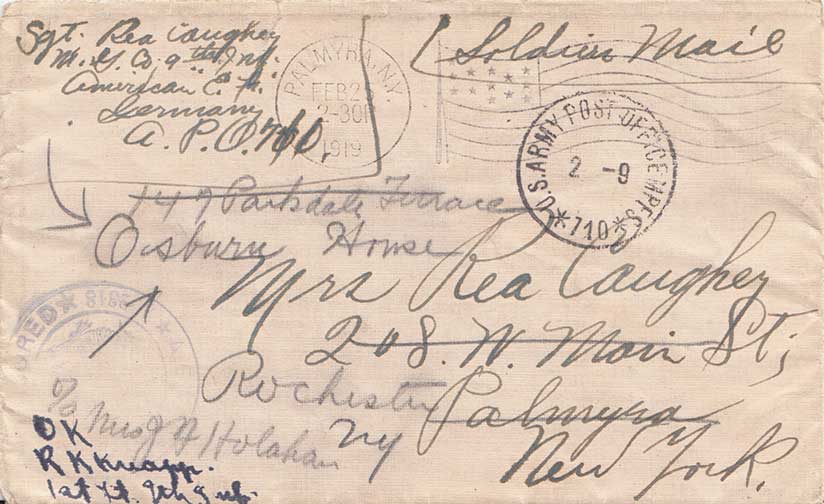 Sgt. Rea Caughey
M. G. Co. 9th Inf.
American E. F.
Germany
A. P. O. 710.
Soldiers Mail
PALMYRA, N.Y.
FEB 2
2-30P
1919
U.S. ARMY POST OFFICE M.P.E.S.
2 -9
*710*
147 Parkdale Terrace
Osburn House
Mrs Rea Caughey
208. W. Main St;
Rochester
Palmyra
NY
New York.
RED * * A.E.
% Mrs J H Holahan
OK
R K Knapp.
1st Lt. 9th Inf.